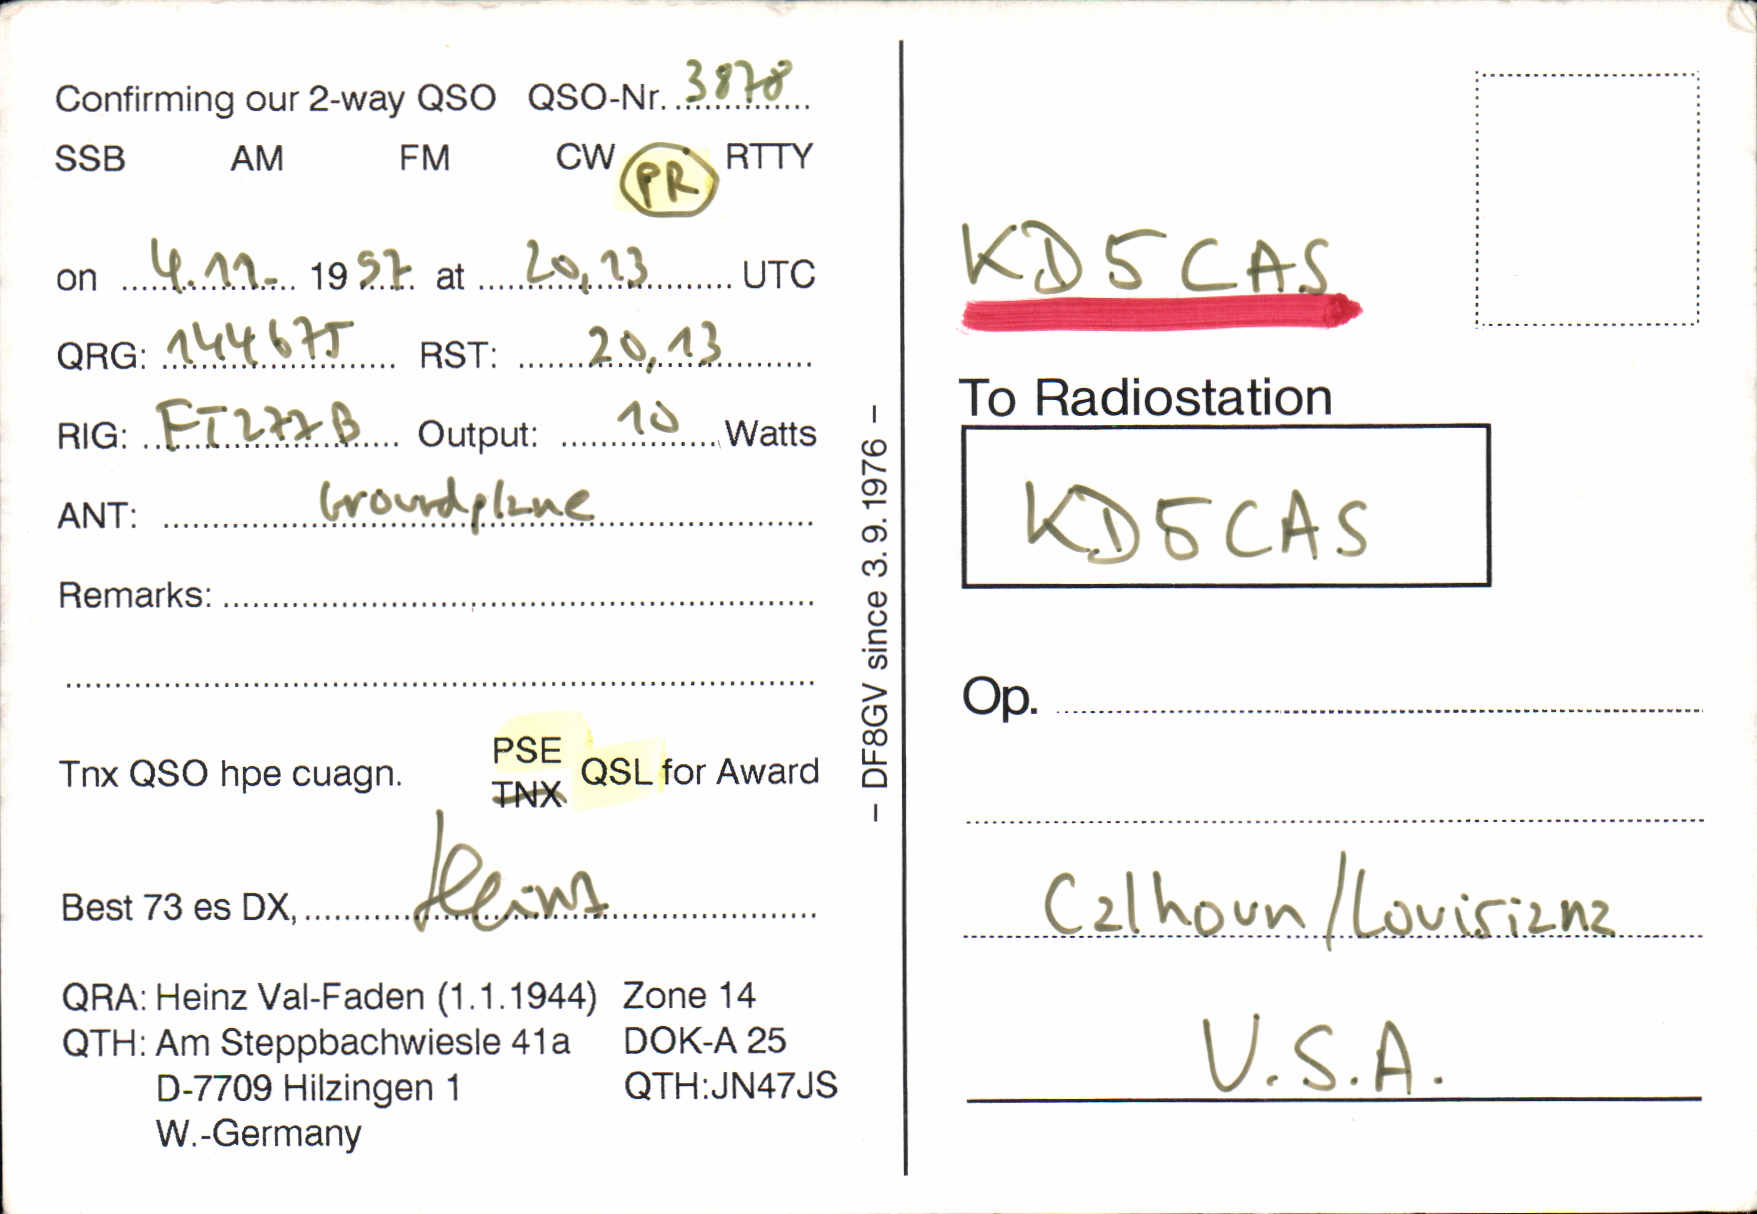 Confirming our 2-way QSO QSO-Nr. 3878
SSB AM FM CW PR RTTY
on 4.11. 1997 at 20,13 UTC
QRG: 144675 RST: 20,13
RIG: FT277B Output: 10 Watts
ANT: Groundplane
Remarks:
Tnx QSO hpe cuagn. PSE TNX QSL for Award
Best 73 es DX, Heinz
QRA: Heinz Val-Faden (1.1.1944) Zone 14
QTH: Am Steppbachwiesle 41a DOK-A 25
D-7709 Hilzingen 1 QTH:JN47JS
W.-Germany
– DF8GV since 3.9.1976 –
KD5CAS
To Radiostation
KD5CAS
Op.
Calhoun/Louisiana
U.S.A.